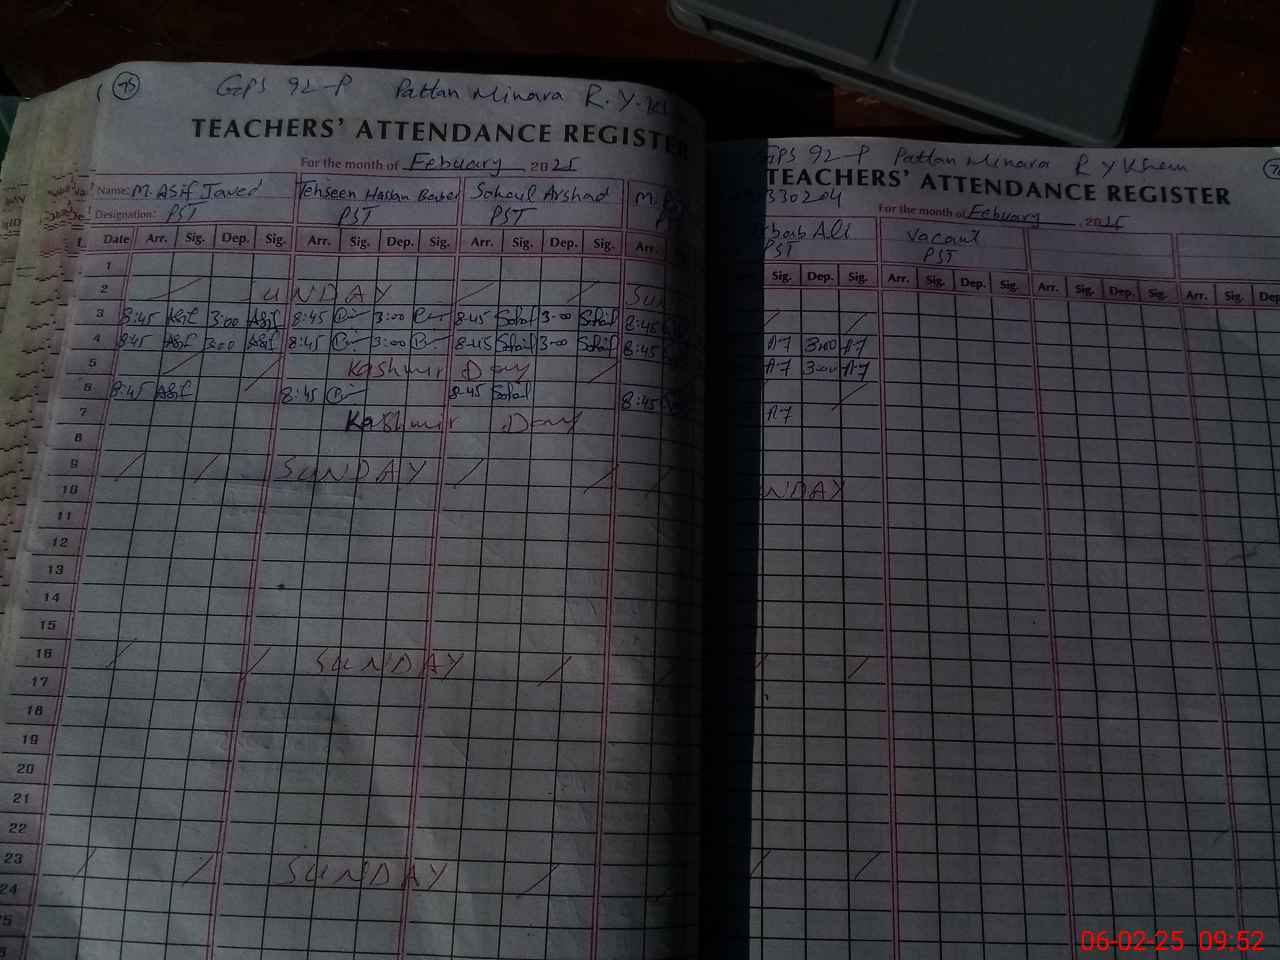 75 GPS 92-P Pattan Minara R.Y.
TEACHERS' ATTENDANCE REGISTER
For the month of Febuary 2025
Name: M. Asif Javed Tehseen Hassan Sohail Arshad M.
Designation: PST PST PST
Date Arr. Sig. Dep. Sig. Arr. Sig. Dep. Sig. Arr. Sig. Dep. Sig. Arr.
1
2 SUNDAY
3 8:45 Asif 3:00 Asif 8:45 3:00 8:45 Sohail 3:00 Sohail 8:45
4 8:45 Asif 3:00 Asif 8:45 3:00 8:45 Sohail 3:00 Sohail 8:45
5 Kashmir Day
6 8:45 Asif 8:45 8:45 Sohail 8:45
7 Kashmir Day
8
9 SUNDAY
10
11
12
13
14
15
16 SUNDAY
17
18
19
20
21
22
23 SUNDAY
24
GPS 92-P Pattan Minara R Y Khan
TEACHERS' ATTENDANCE REGISTER
330204
For the month of Febuary, 2025
Ali Vacant
PST PST
Sig. Dep. Sig. Arr. Sig. Dep. Sig. Arr. Sig. Dep. Sig. Arr. Sig. Dep
A7 3:00 A7
A7 3:00 A7
A7
NDAY
06-02-25 09:52